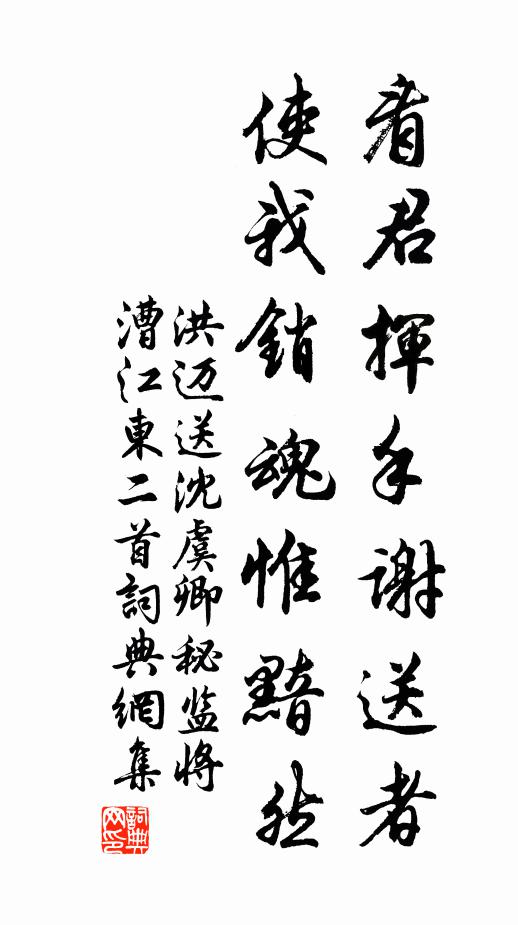 看君揮手謝送者
使我銷魂惟黯然
洪迈送沈虞卿秘监將
漕江東二首詞典網集
詞典
网印